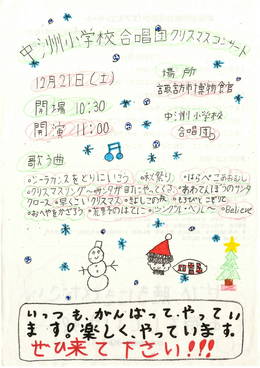 中洲小学校合唱団クリスマスコンサート
12月21日(土)
開場 10:30
開演 11:00
場所
諏訪市博物館
中洲小学校
合唱団
歌う曲
○シーラカンスをとりにいこう ○秋祭り ○はらぺこあおむし
○クリスマスソング～サンタが町にやってくる、あわてんぼうのサンタ
クロース ○早くこいクリスマス ○きよしこの夜 ○
おへやをかざろう ○ ○ジングルベル～ ○Believe
いっつも、がんばって、やってい
ます。楽しく、やっています。
ぜひ来て下さい!!!